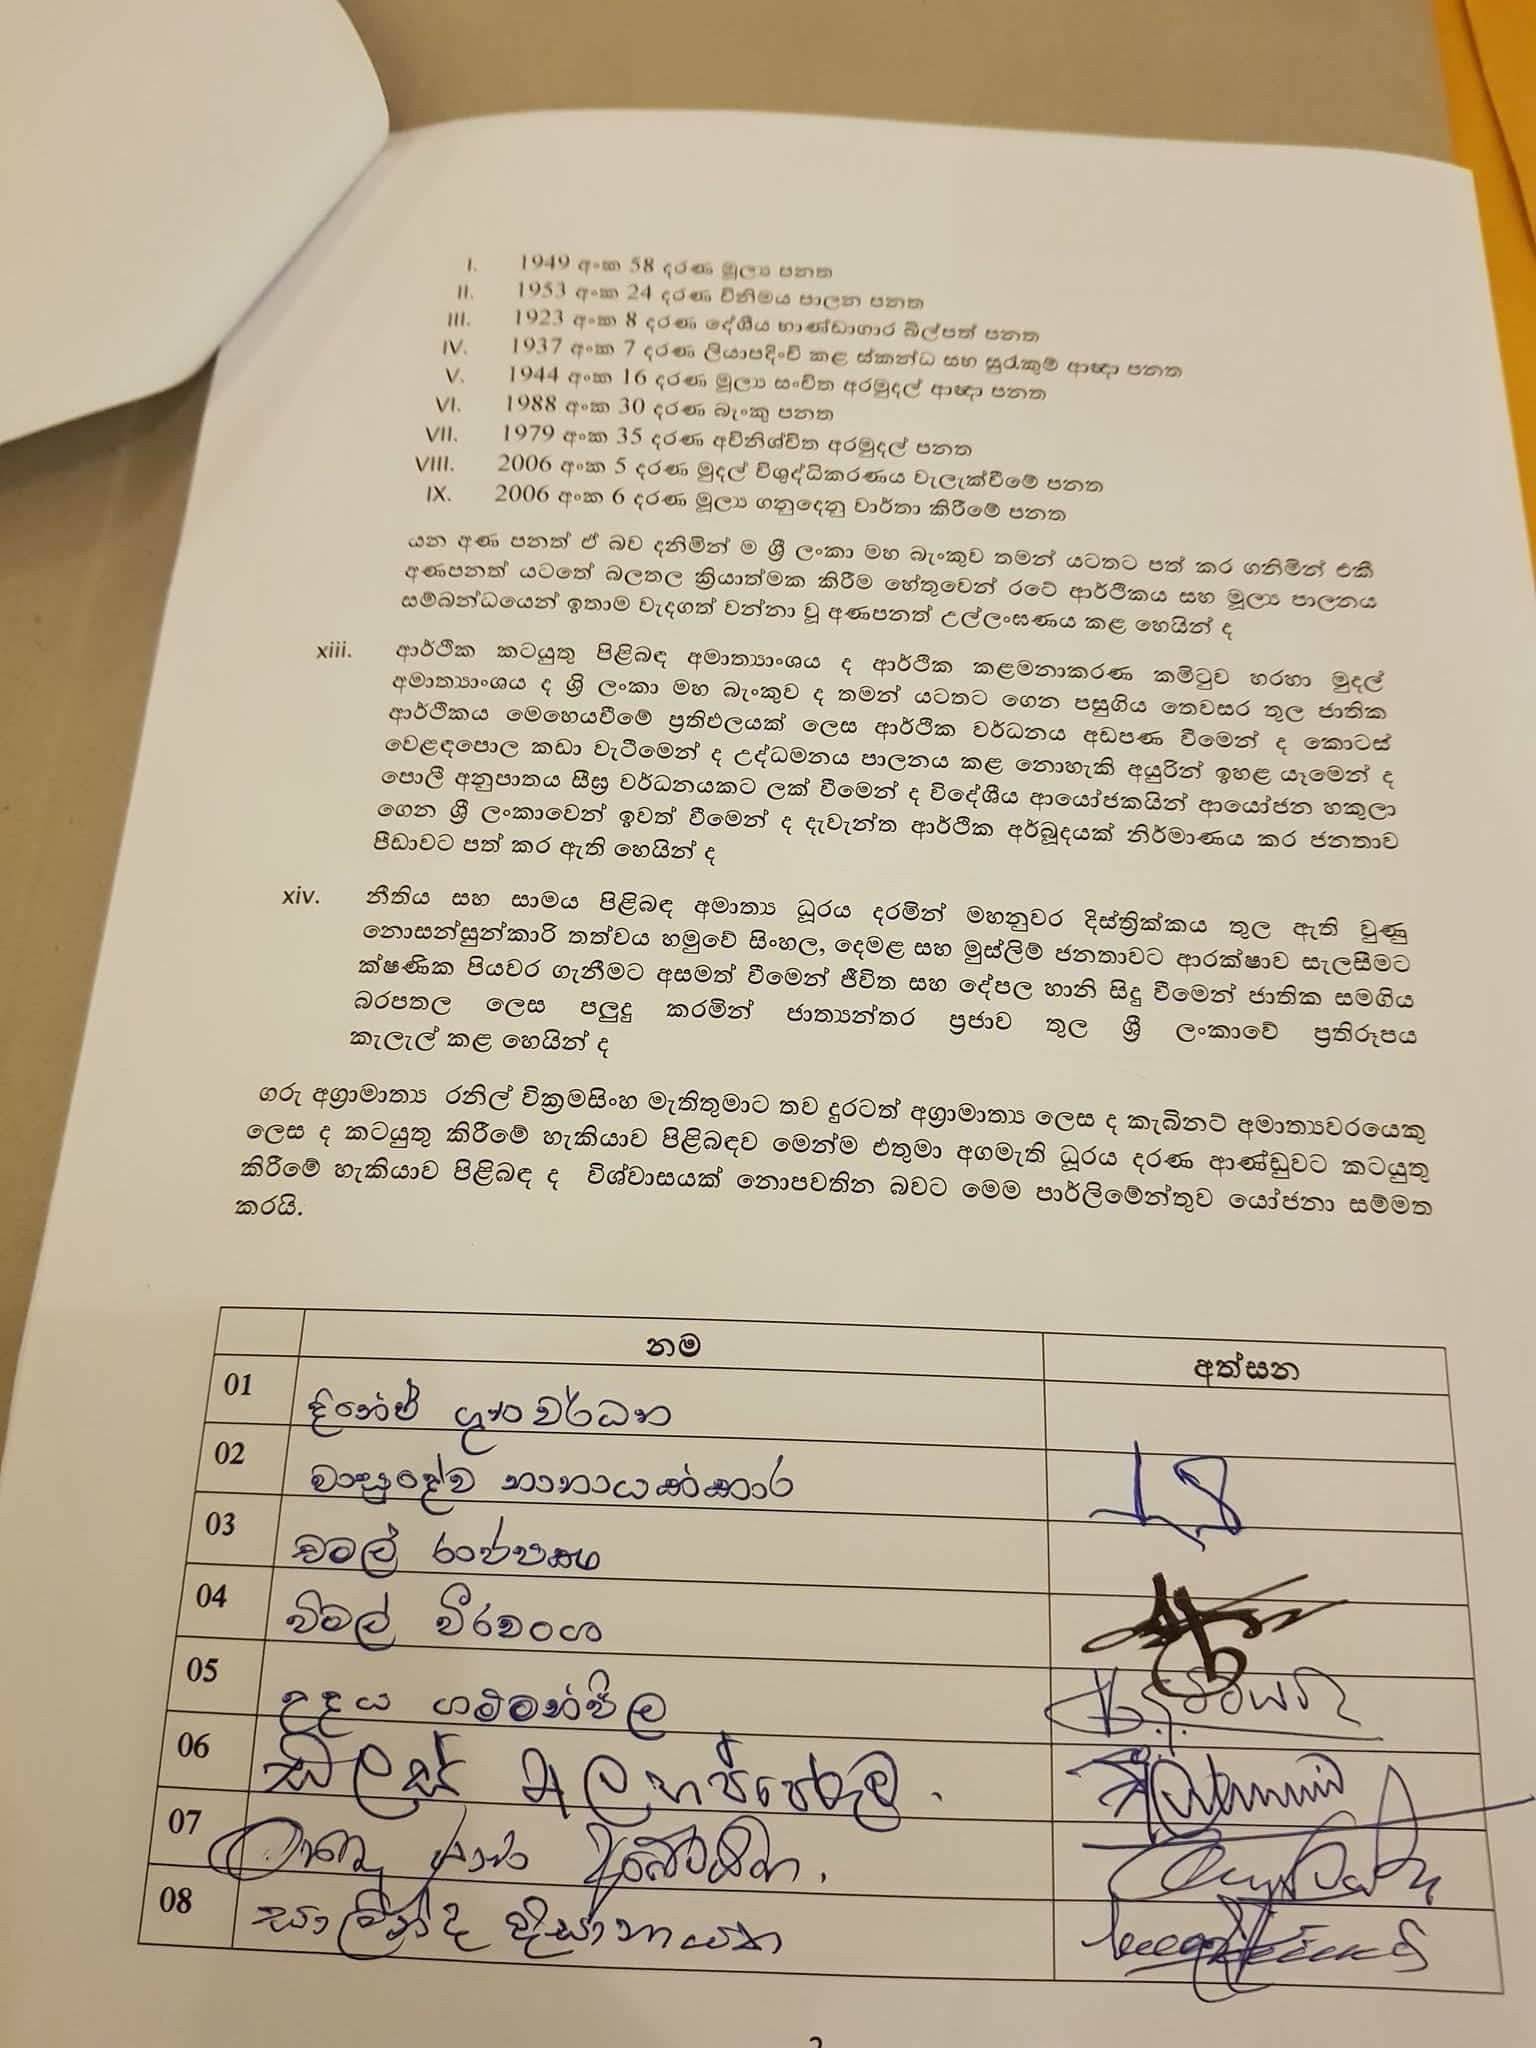 I. 1949 අංක 58 දරණ මූල්‍ය පනත
II. 1953 අංක 24 දරණ විනිමය පාලන පනත
III. 1923 අංක 8 දරණ දේශීය භාණ්ඩාගාර බිල්පත් පනත
IV. 1937 අංක 7 දරණ ලියාපදිංචි කළ ස්කන්ධ සහ සුරැකුම් ආඥා පනත
V. 1944 අංක 16 දරණ මූල්‍ය සංචිත අරමුදල් ආඥා පනත
VI. 1988 අංක 30 දරණ බැංකු පනත
VII. 1979 අංක 35 දරණ අවිනිශ්චිත අරමුදල් පනත
VIII. 2006 අංක 5 දරණ මුදල් විශුද්ධිකරණය වැලැක්වීමේ පනත
IX. 2006 අංක 6 දරණ මූල්‍ය ගනුදෙනු වාර්තා කිරීමේ පනත
යන අණ පනත් ඒ බව දනිමින් ම ශ්‍රී ලංකා මහ බැංකුව තමන් යටතට පත් කර ගනිමින් එකී
අණපනත් යටතේ බලතල ක්‍රියාත්මක කිරීම හේතුවෙන් රටේ ආර්ථිකය සහ මූල්‍ය පාලනය
සම්බන්ධයෙන් ඉතාම වැදගත් වන්නා වූ අණපනත් උල්ලංඝණය කළ හෙයින් ද
xiii. ආර්ථික කටයුතු පිළිබඳ අමාත්‍යාංශය ද ආර්ථික කළමනාකරණ කමිටුව හරහා මුදල්
අමාත්‍යාංශය ද ශ්‍රී ලංකා මහ බැංකුව ද තමන් යටතට ගෙන පසුගිය තෙවසර තුල ජාතික
ආර්ථිකය මෙහෙයවීමේ ප්‍රතිඵලයක් ලෙස ආර්ථික වර්ධනය අඩපණ වීමෙන් ද කොටස්
වෙළඳපොල කඩා වැටීමෙන් ද උද්ධමනය පාලනය කළ නොහැකි අයුරින් ඉහළ යෑමෙන් ද
පොලී අනුපාතය සීඝ්‍ර වර්ධනයකට ලක් වීමෙන් ද විදේශීය ආයෝජකයින් ආයෝජන හකුලා
ගෙන ශ්‍රී ලංකාවෙන් ඉවත් වීමෙන් ද දැවැන්ත ආර්ථික අර්බූදයක් නිර්මාණය කර ජනතාව
පීඩාවට පත් කර ඇති හෙයින් ද
xiv. නීතිය සහ සාමය පිළිබඳ අමාත්‍ය ධූරය දරමින් මහනුවර දිස්ත්‍රික්කය තුල ඇති වුණු
නොසන්සුන්කාරී තත්වය හමුවේ සිංහල, දෙමළ සහ මුස්ලිම් ජනතාවට ආරක්ෂාව සැලසීමට
ක්ෂණික පියවර ගැනීමට අසමත් වීමෙන් ජීවිත සහ දේපල හානි සිදු වීමෙන් ජාතික සමගිය
බරපතල ලෙස පලුදු කරමින් ජාත්‍යන්තර ප්‍රජාව තුල ශ්‍රී ලංකාවේ ප්‍රතිරූපය
කැලැල් කළ හෙයින් ද
ගරු අග්‍රාමාත්‍ය රනිල් වික්‍රමසිංහ මැතිතුමාට තව දුරටත් අග්‍රාමාත්‍ය ලෙස ද කැබිනට් අමාත්‍යවරයෙකු
ලෙස ද කටයුතු කිරීමේ හැකියාව පිළිබඳව මෙන්ම එතුමා අගමැති ධූරය දරණ ආණ්ඩුවට කටයුතු
කිරීමේ හැකියාව පිළිබඳ ද විශ්වාසයක් නොපවතින බවට මෙම පාර්ලිමේන්තුව යෝජනා සම්මත
කරයි.
නම අත්සන
01 දිනේෂ් ගුණවර්ධන
02 වාසුදේව නානායක්කාර
03 චමල් රාජපක්ෂ
04 විමල් වීරවංශ
05 උදය ගම්මන්පිල
06 ඩලස් අලහප්පෙරුම
07
08 සාලින්ද දිසානායක